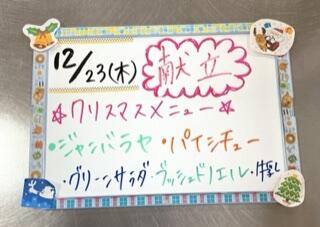 12/23(木) 献立
☆クリスマスメニュー☆
・ジャンバラヤ ・パイシチュー
・グリーンサラダ ・ブッシュドノエル ・牛乳